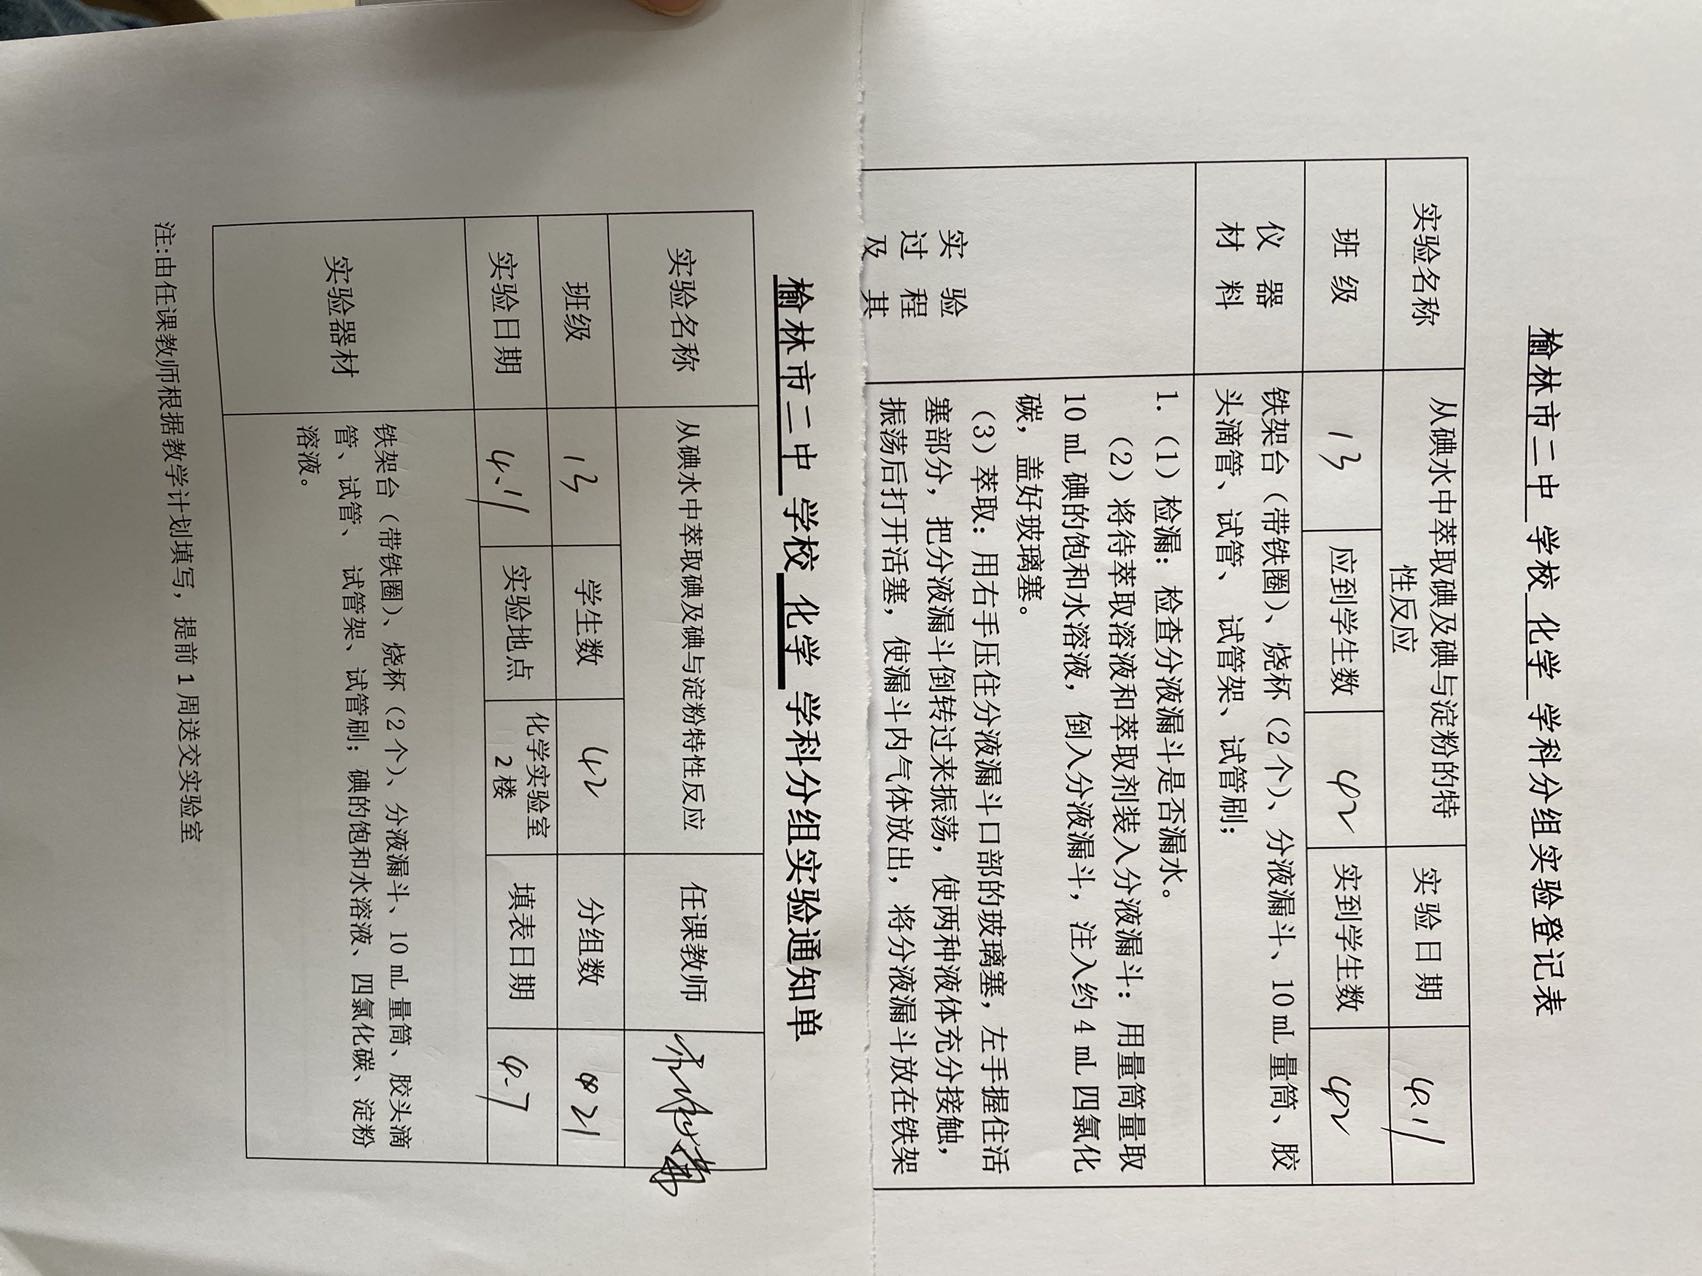 榆林市二中 学校 化学 学科分组实验登记表
实验名称 从碘水中萃取碘及碘与淀粉的特 实验日期 4.11
性反应
班 级 13 应到学生数 42 实到学生数 42
仪 器 铁架台（带铁圈）、烧杯（2个）、分液漏斗、10 mL量筒、胶
材 料 头滴管、试管、 试管架、试管刷；
1.（1）检漏：检查分液漏斗是否漏水。
（2）将待萃取溶液和萃取剂装入分液漏斗：用量筒量取
10 mL碘的饱和水溶液，倒入分液漏斗，注入约4 mL四氯化
碳，盖好玻璃塞。
实 验 （3）萃取：用右手压住分液漏斗口部的玻璃塞，左手握住活
过 程 塞部分，把分液漏斗倒转过来振荡，使两种液体充分接触，
及 其 振荡后打开活塞，使漏斗内气体放出，将分液漏斗放在铁架
榆林市二中 学校 化学 学科分组实验通知单
实验名称 从碘水中萃取碘及碘与淀粉特性反应 任课教师
班级 13 学生数 42 分组数 21
实验日期 4.11 实验地点 化学实验室 填表日期 4.7
2楼
实验器材 铁架台（带铁圈）、烧杯（2个）、分液漏斗、10 mL量筒、胶头滴
管、试管、 试管架、试管刷；碘的饱和水溶液、四氯化碳、淀粉
溶液。
注:由任课教师根据教学计划填写，提前1周送交实验室